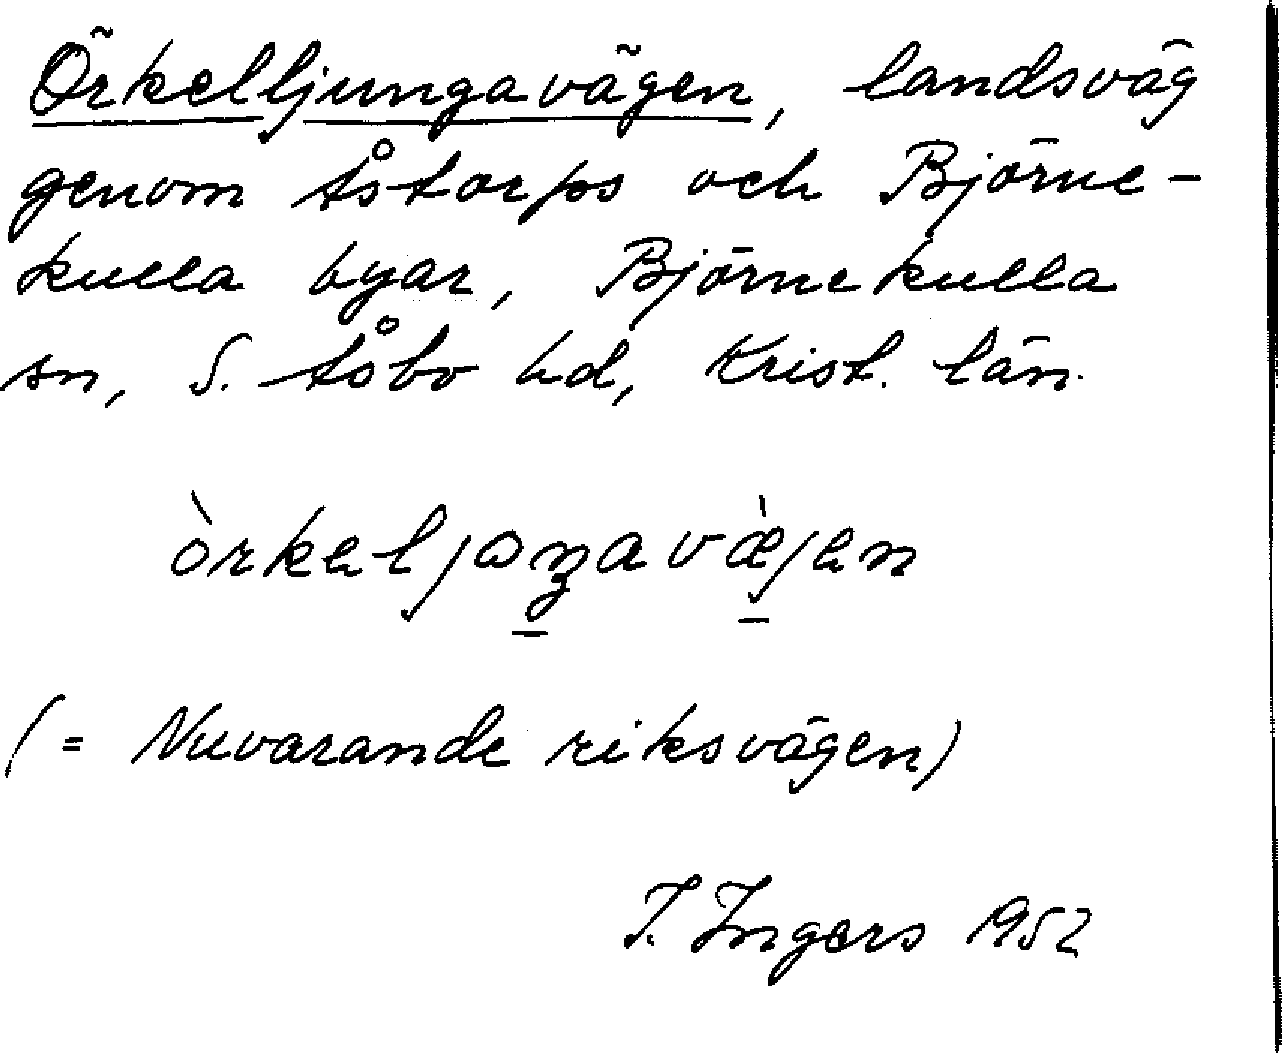 Örkelljungavägen, landsväg
genom Åstorps och Björne-
kulla byar, Björnekulla
sn, S. Åsbo hd, Krist. län.
(= Nuvarande riksvägen)
I. Ingers 1952